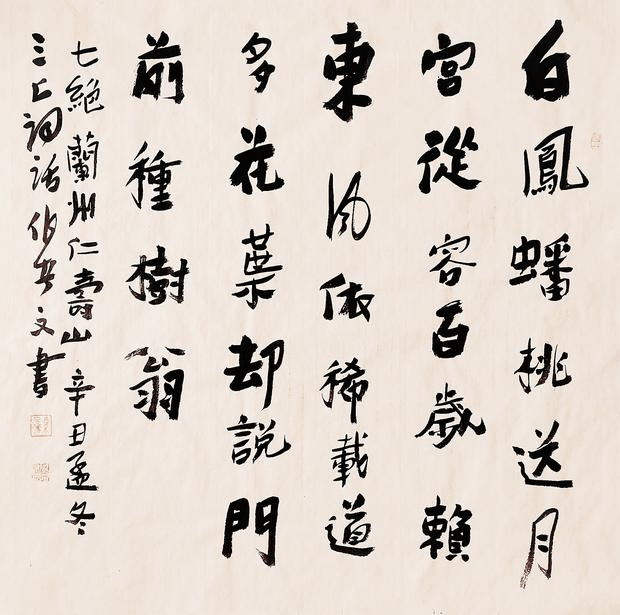 白鳳蟠桃送月
宮從容百歲賴
東風依稀載道
多花葉却說門
前種樹翁
七絕蘭州仁壽山辛丑孟冬
三上詞話文書